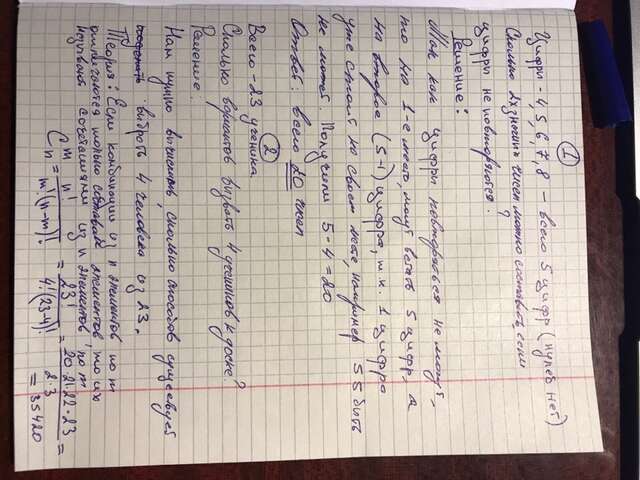 ①
Цифры - 4, 5, 6, 7, 8 - всего 5 цифр (нулей нет)
Сколько 2х значных чисел можно составить, если
цифры не повторяются?
Решение:
Так как цифры повторяться не могут,
то на 1-е место, могут встать 5 цифр, а
на второе (5-1) цифра, т.к. 1 цифра
уже стоит на своем месте, например 55 быть
не может. Получим 5·4=20
Ответ: всего 20 чисел
②
Всего - 23 ученика
Сколько вариантов вызвать 4 учеников к доске?
Решение.
Нам нужно выяснить, сколько способов существует
выбрать 4 человека из 23.
Теория: Если комбинации из n элементов по m
отличаются только составом элементов, то их
называют сочетаниями из n элементов, по m
C_n^m = n! / m!(n-m)! = 23! / 4!(23-4)! = 20·21·22·23 / 2·3 =
= 35420